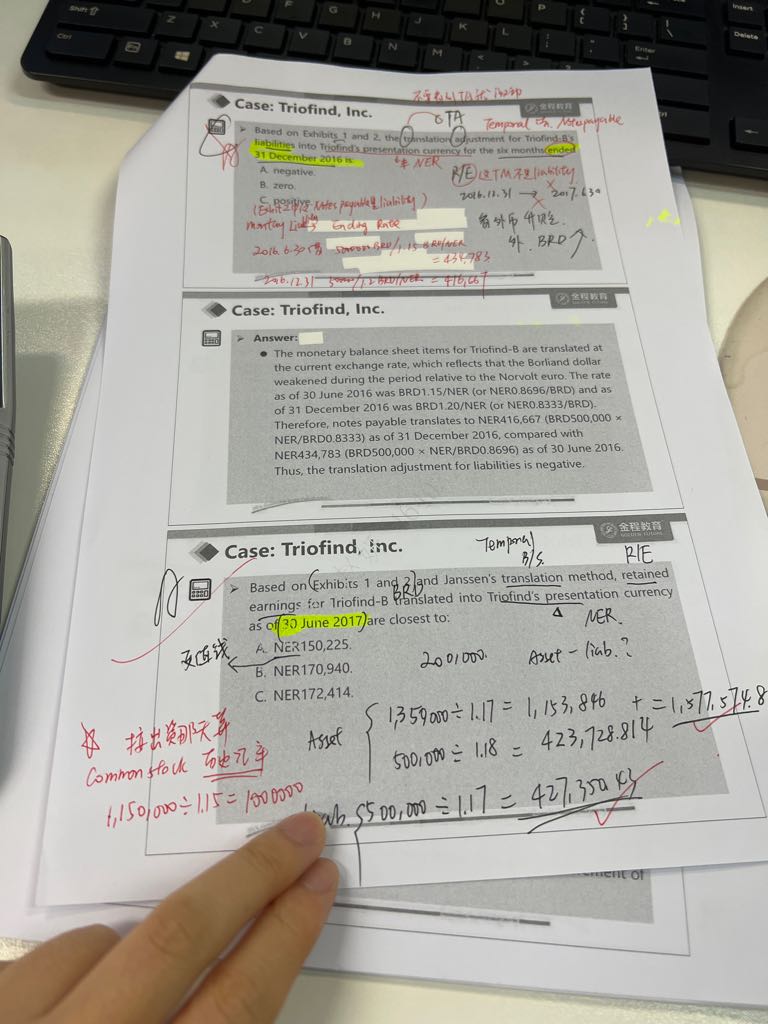 Case: Triofind, Inc.
金程教育
TA
Temporal
Notes payable
Based on Exhibits 1 and 2, the translation adjustment for Triofind-B's
liabilities into Triofind's presentation currency for the six months ended
31 December 2016 is:
NER
R/E
liability
A. negative.
2016.12.31 → 2017.6.30
B. zero.
C. positive.
Notes payable liability)
Ending Rate
外 BRD ↑
2016.6.30 500000 BRD/1.15 BRD/NER
= 434,783
2016.12.31 /1.2 BRD/NER = 416,667
Case: Triofind, Inc.
金程教育
Answer:
The monetary balance sheet items for Triofind-B are translated at
the current exchange rate, which reflects that the Borliand dollar
weakened during the period relative to the Norvolt euro. The rate
as of 30 June 2016 was BRD1.15/NER (or NER0.8696/BRD) and as
of 31 December 2016 was BRD1.20/NER (or NER0.8333/BRD).
Therefore, notes payable translates to NER416,667 (BRD500,000 ×
NER/BRD0.8333) as of 31 December 2016, compared with
NER434,783 (BRD500,000 × NER/BRD0.8696) as of 30 June 2016.
Thus, the translation adjustment for liabilities is negative.
金程教育
GOLDEN FUTURE
Case: Triofind, Inc.
Temporal
B/S.
R/E
BRD
Based on Exhibits 1 and 2 and Janssen's translation method, retained
earnings for Triofind-B translated into Triofind's presentation currency
as of 30 June 2017 are closest to:
NER.
A. NER150,225.
B. NER170,940.
C. NER172,414.
Asset - liab.?
Asset
1,350,000 ÷ 1.17 = 1,153,846
+ = 1,577,574.8
500,000 ÷ 1.18 = 423,728.814
Common stock
1,150,000 ÷ 1.15 = 1000000
liab.
500,000 ÷ 1.17 =